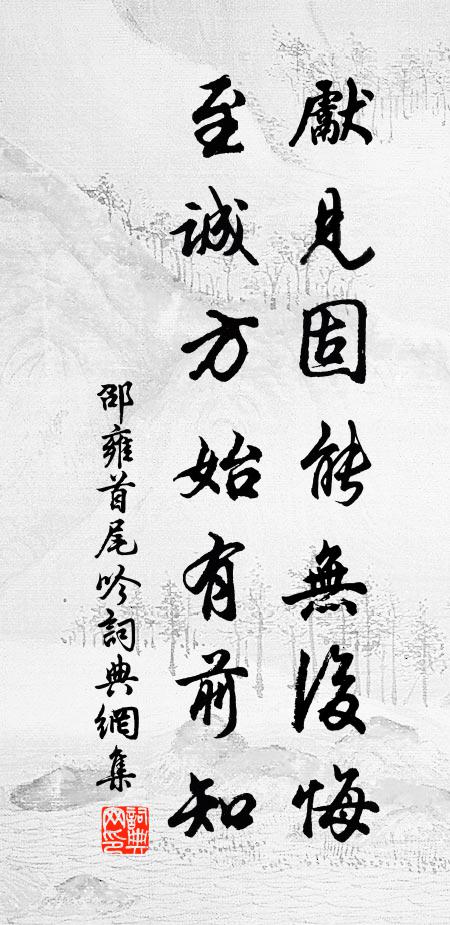 獻見固能無後悔
至誠方始有前知
邵雍首尾吟詞典網集
詞典網印